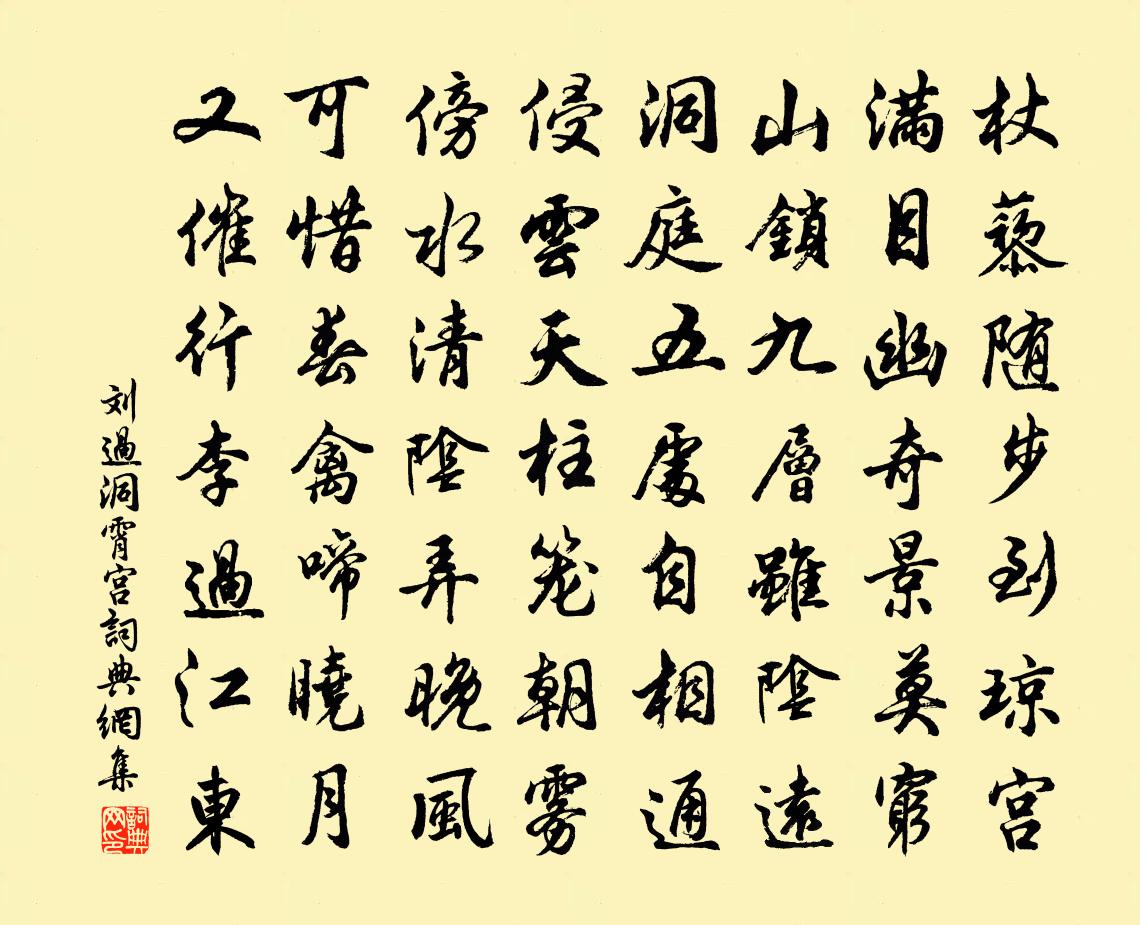 杖藜随步到琼宫
满目幽奇景莫窮
山鎖九層雖陰遠
洞庭五處自相通
侵雲天柱笼朝雾
傍水清陰弄晚風
可惜春禽啼曉月
又催行李過江東
刘過洞霄宫詞典網集
詞典
网印